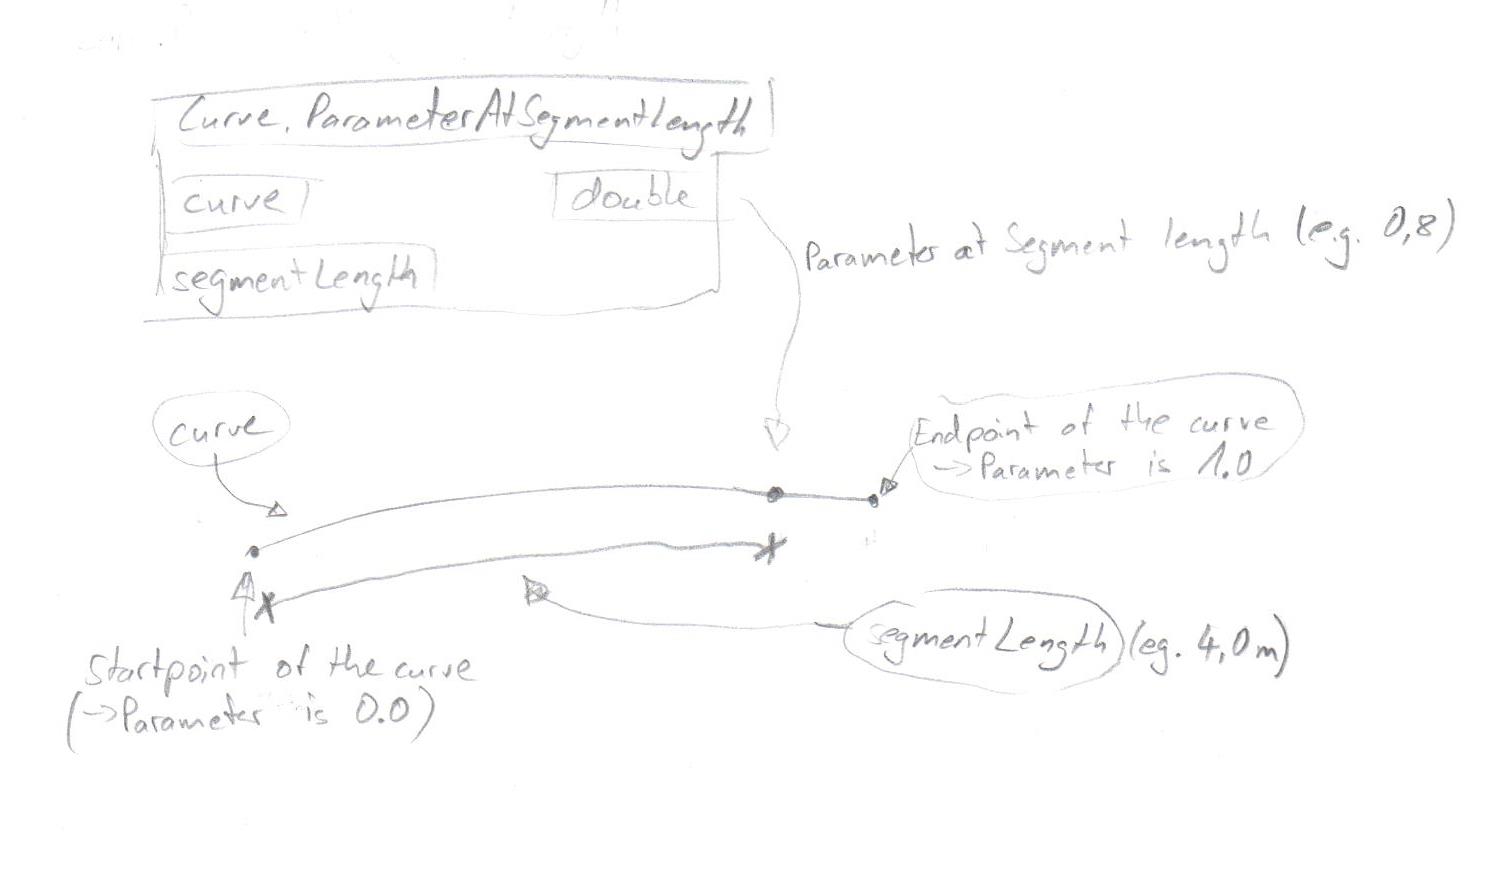 Curve.ParameterAtSegmentLength
curve
double
segmentLength
Parameter at Segment length (e.g. 0,8)
curve
Endpoint of the curve
→Parameter is 1.0
segmentLength (eg. 4,0m)
Startpoint of the curve
(→Parameter is 0.0)